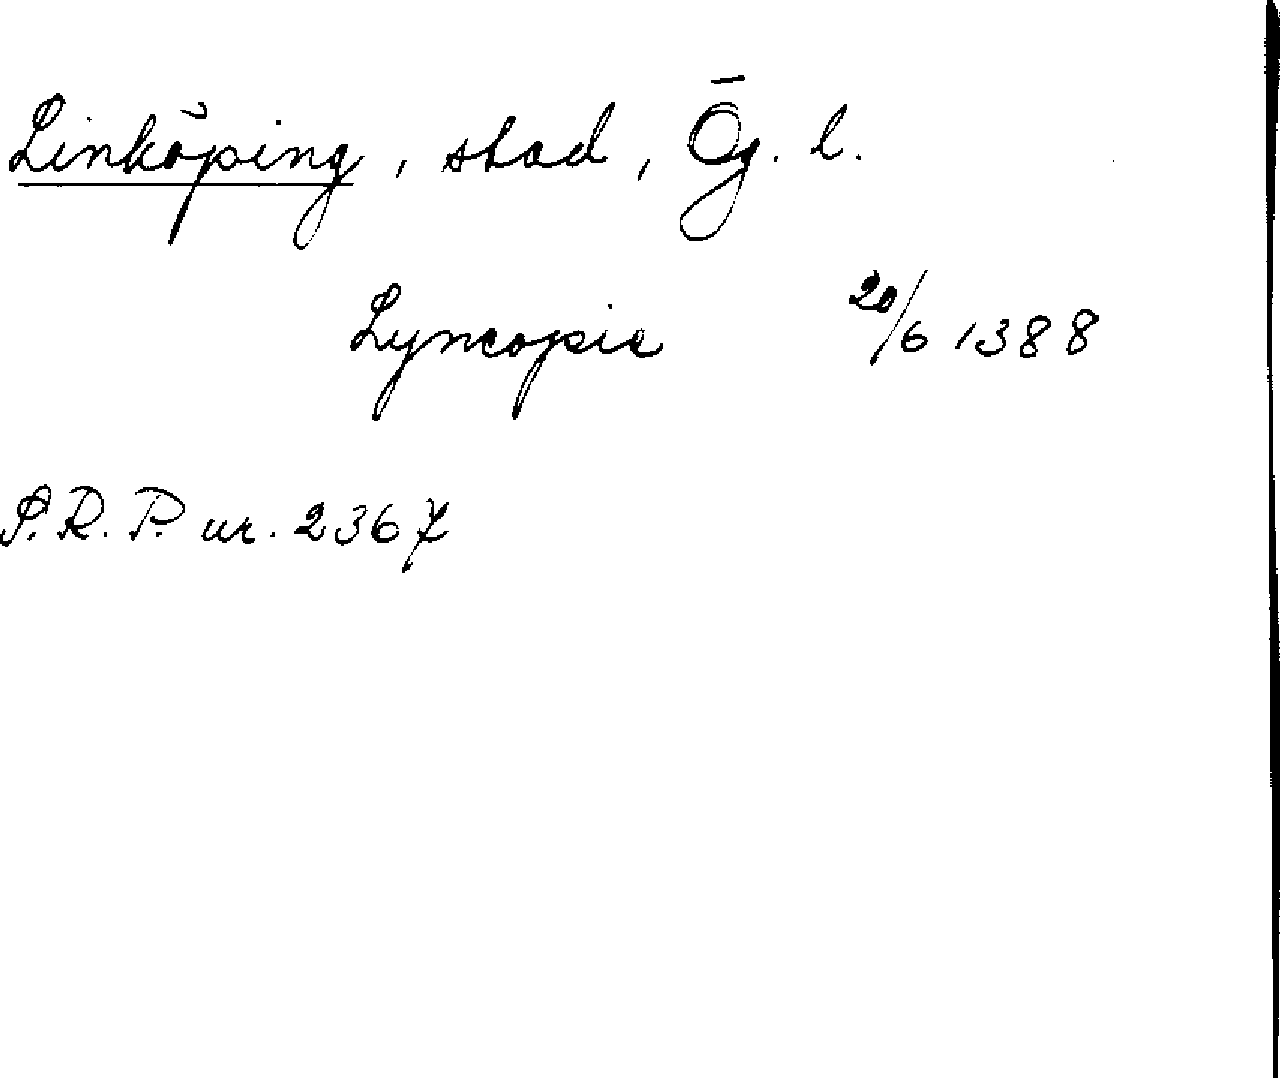 Linköping, stad, Ög. l.
Lyncopie 20/6 1388
S.R.P. nr. 2367